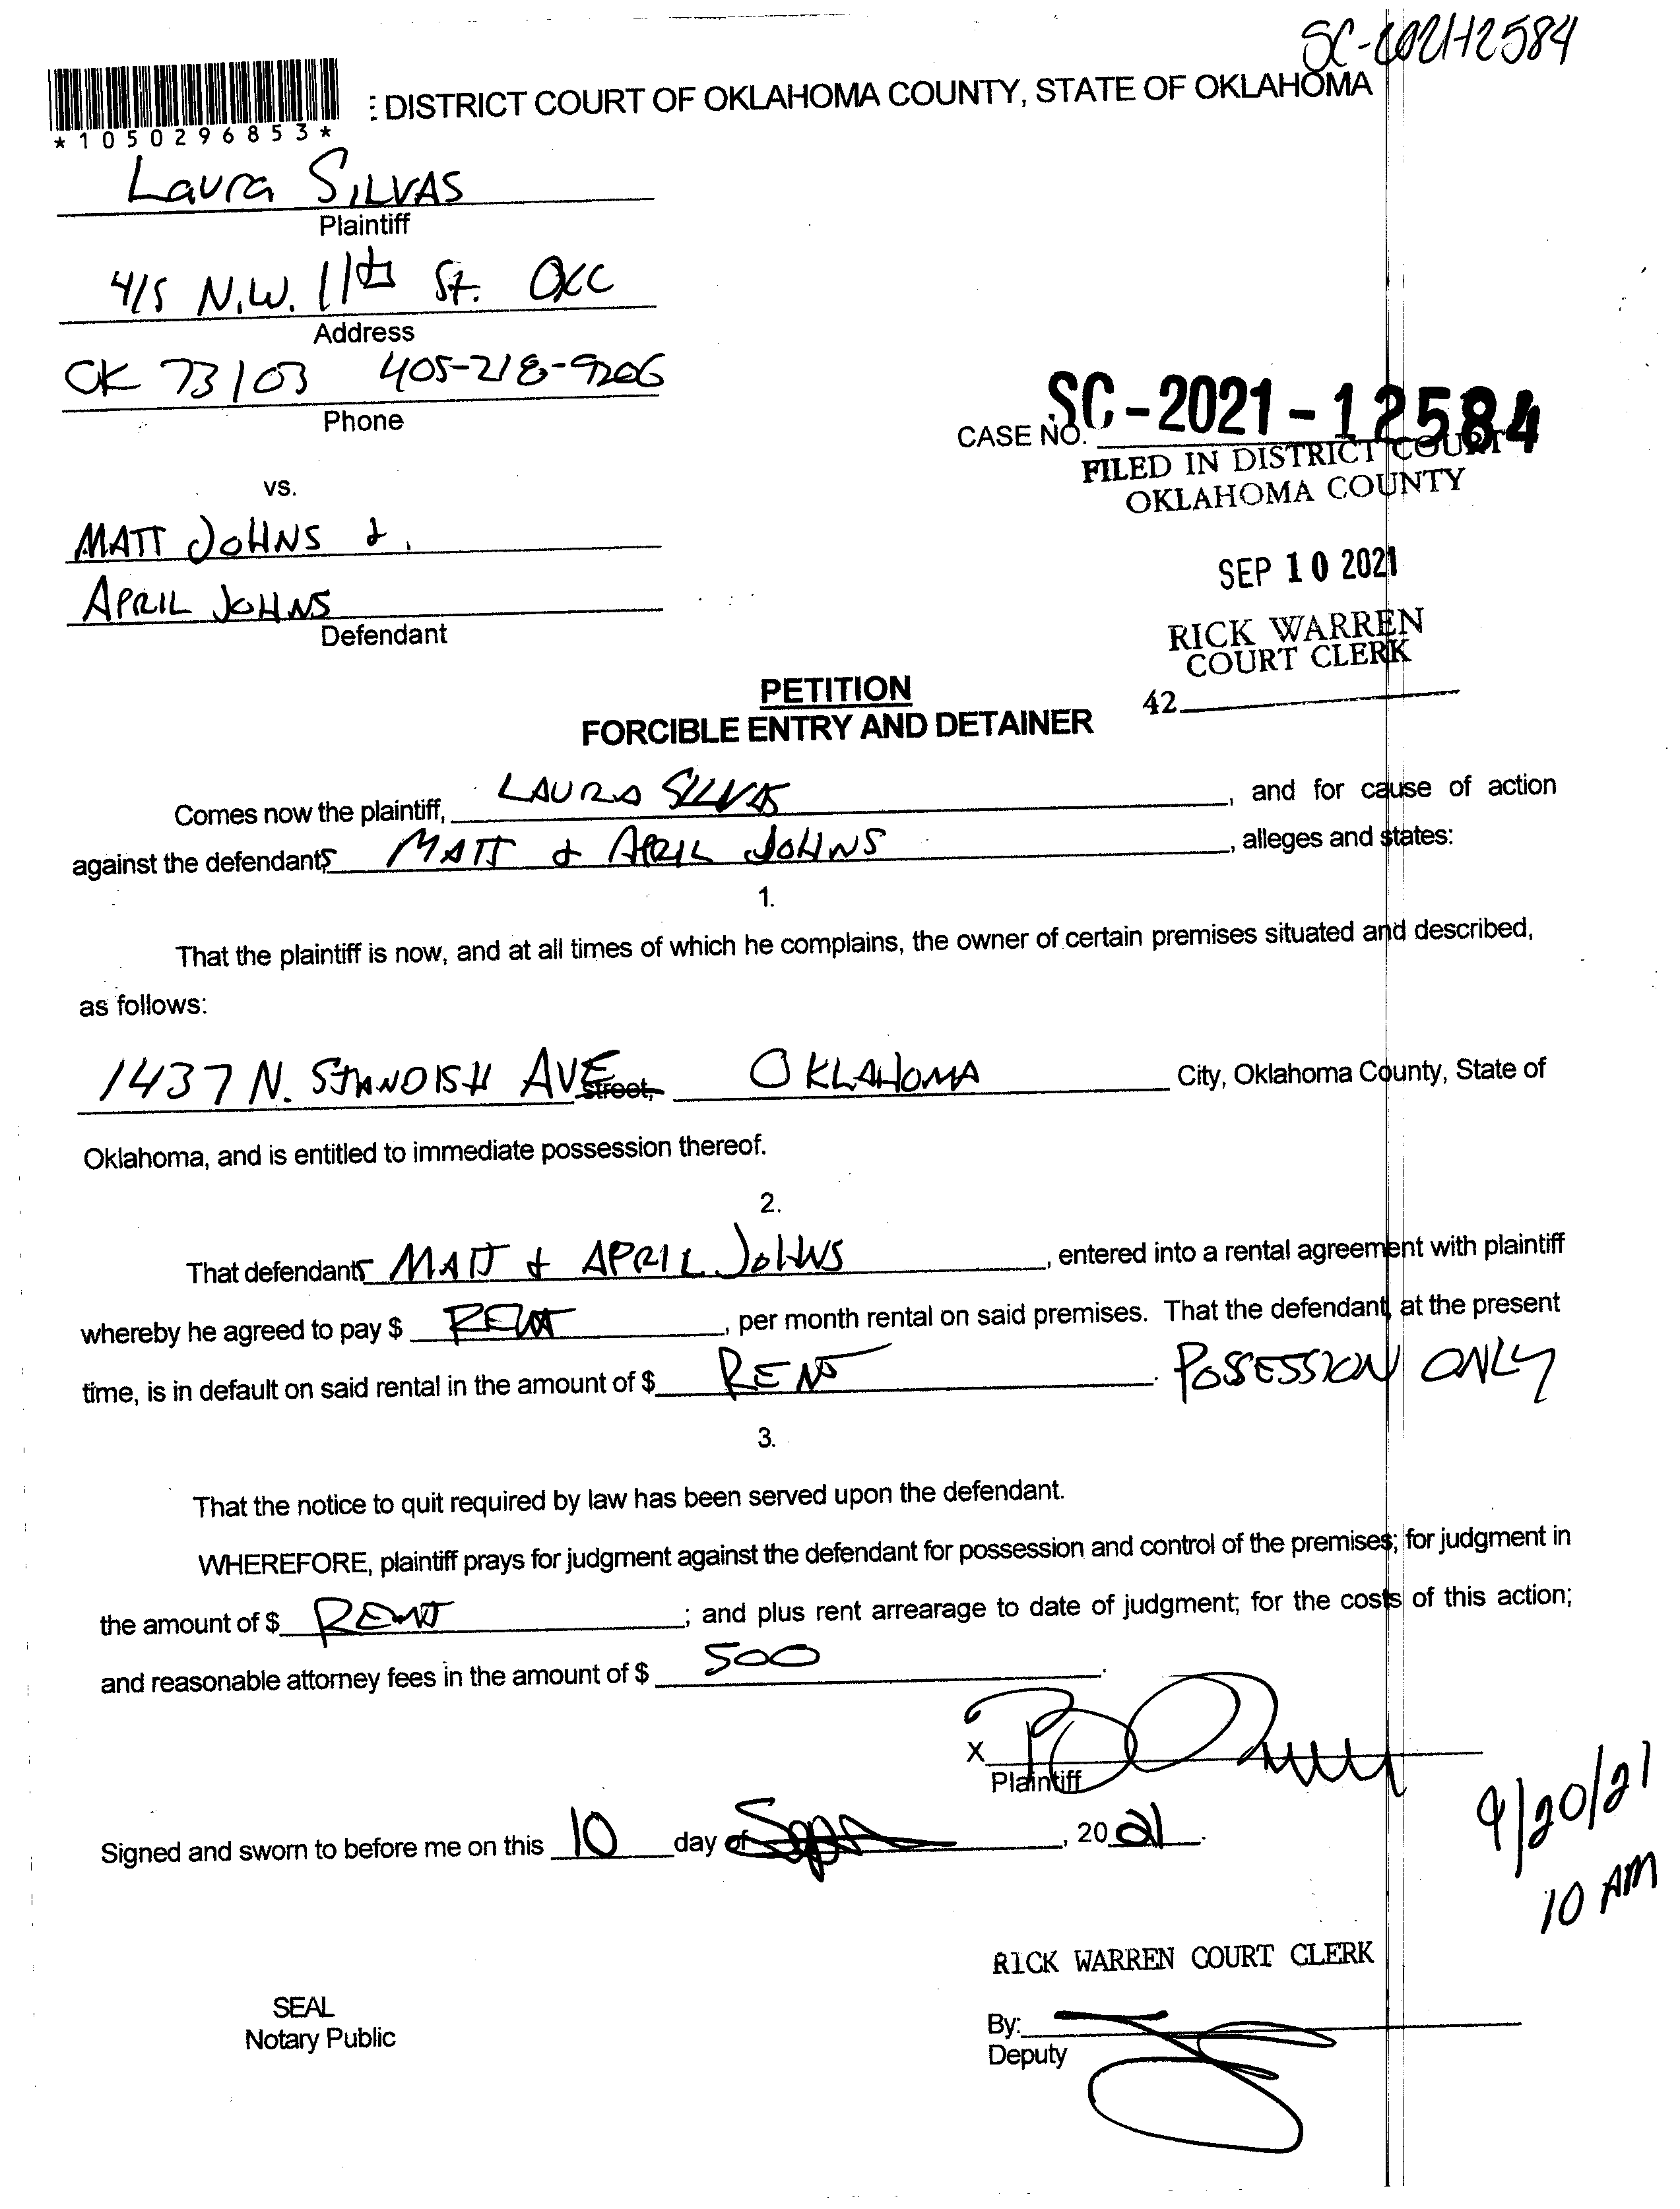 SC-2021-12584
: DISTRICT COURT OF OKLAHOMA COUNTY, STATE OF OKLAHOMA
*1050296853*
Laura SILVAS
Plaintiff
415 N.W. 11th St. OKC
Address
OK 73103 405-218-9206
Phone
CASE NO. SC-2021-12584
FILED IN DISTRICT COURT
OKLAHOMA COUNTY
vs.
MATT JOHNS &
SEP 10 2021
APRIL JOHNS
Defendant
RICK WARREN
COURT CLERK
42
PETITION
FORCIBLE ENTRY AND DETAINER
Comes now the plaintiff, LAURA SILVAS, and for cause of action
against the defendants MATT & APRIL JOHNS, alleges and states:
1.
That the plaintiff is now, and at all times of which he complains, the owner of certain premises situated and described,
as follows:
1437 N. STANDISH AVE Street, OKLAHOMA City, Oklahoma County, State of
Oklahoma, and is entitled to immediate possession thereof.
2.
That defendants MATT & APRIL JOHNS, entered into a rental agreement with plaintiff
whereby he agreed to pay $ RENT, per month rental on said premises. That the defendant, at the present
time, is in default on said rental in the amount of $ RENT. POSSESSION ONLY
3.
That the notice to quit required by law has been served upon the defendant.
WHEREFORE, plaintiff prays for judgment against the defendant for possession and control of the premises; for judgment in
the amount of $ RENT; and plus rent arrearage to date of judgment; for the costs of this action;
and reasonable attorney fees in the amount of $ 500.
X
Plaintiff
9/20/21
10 AM
Signed and sworn to before me on this 10 day of Sept, 2021.
RICK WARREN COURT CLERK
SEAL
Notary Public
By:
Deputy